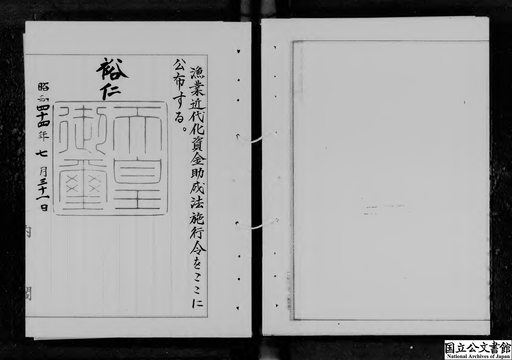 漁業近代化資金助成法施行令をここに
公布する。
裕仁
天皇
御璽
昭和四十四年七月三十一日
内
閣
国立公文書館
National Archives of Japan